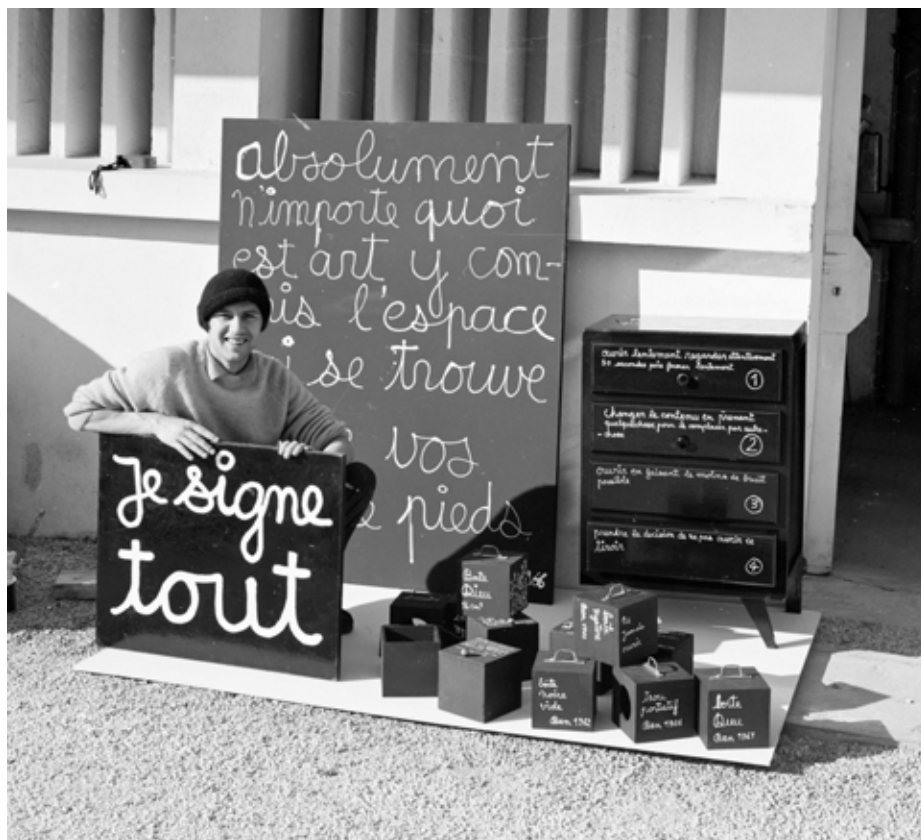 absolument
n'importe quoi
est art y com-
is l'espace
i se trouve
vos
pieds
Je signe
tout
ouvrir lentement regarder attentivement
30 secondes puis fermer lentement
1
Changer le contenu en prenant
quelquechose pour le remplacer par autre-
- chose
2
ouvrir en faisant le moins de bruit
possible
3
prendre la décision de ne pas ouvrir ce
tiroir
4
boîte
Dieu
boîte
noire
vide
Ben 1962
Trou
portatif
Ben
boîte
Dieu
Ben 1961